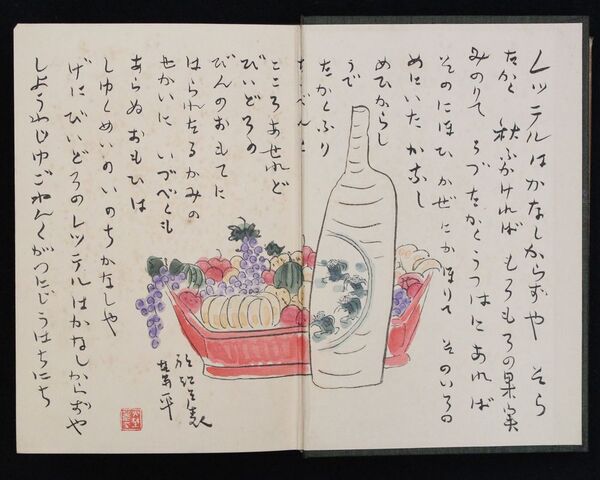 レッテルはかなしからずや そら
たかく 秋ふかければ もろもろの果実
みのりて うづたかくうつはにあれば
そのにほひ かぜにかほりて そのいろの
めにいたかなし
めひからし
うで
たかくふり
こころあせれど
びいどろの
びんのおもてに
はられたるかみの
せかいに いづべくも
あらぬ おもひは
しゆくめいのいのちかなしや
げに びいどろのレッテルはかなしからずや
しようわじゆごねんくがつにじうはちにち